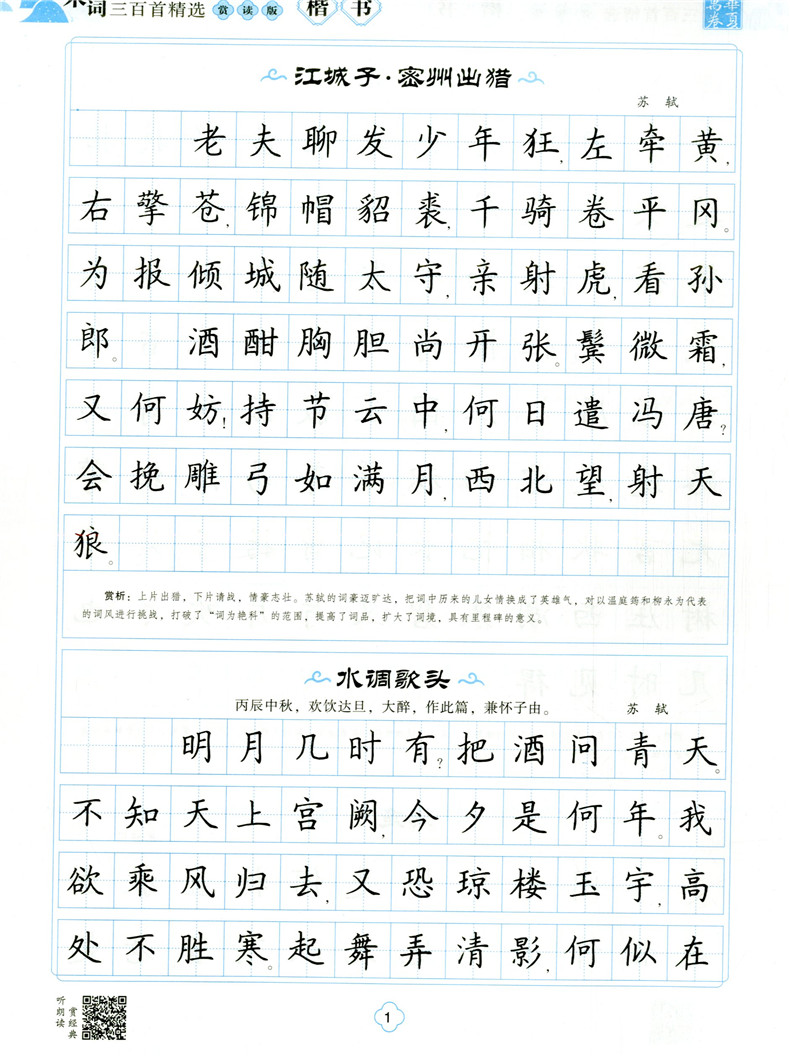 宋词三百首精选 赏读版 楷书
华夏万卷
江城子·密州出猎
苏轼
老夫聊发少年狂,左牵黄,
右擎苍,锦帽貂裘,千骑卷平冈。
为报倾城随太守,亲射虎,看孙
郎。 酒酣胸胆尚开张。鬓微霜,
又何妨!持节云中,何日遣冯唐?
会挽雕弓如满月,西北望,射天
狼。
赏析:上片出猎,下片请战,情豪志壮。苏轼的词豪迈旷达,把词中历来的儿女情换成了英雄气,对以温庭筠和柳永为代表
的词风进行挑战,打破了“词为艳科”的范围,提高了词品,扩大了词境,具有里程碑的意义。
水调歌头
丙辰中秋,欢饮达旦,大醉,作此篇,兼怀子由。 苏轼
明月几时有?把酒问青天。
不知天上宫阙,今夕是何年。我
欲乘风归去,又恐琼楼玉宇,高
处不胜寒。起舞弄清影,何似在
听朗读
赏经典
1